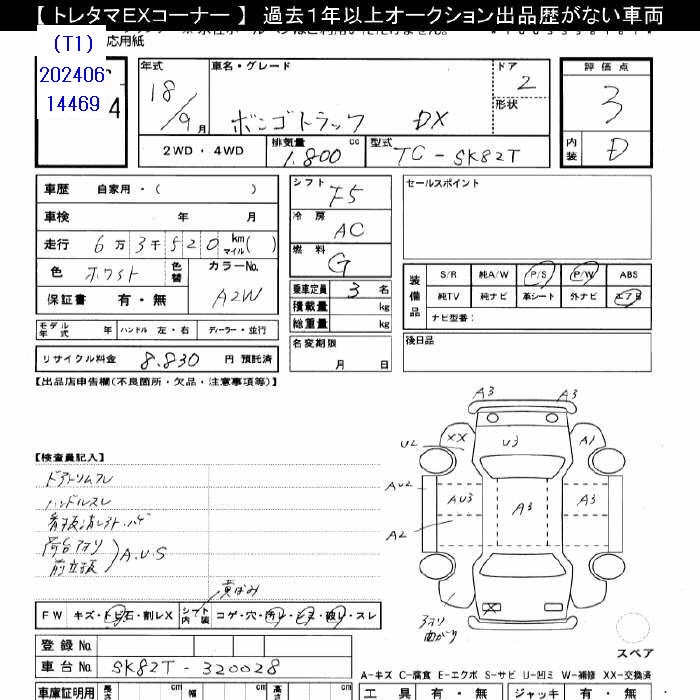 【 トレタマEXコーナー 】 過去1年以上オークション出品歴がない車両
応用紙
(T1)
202406
14469
4
年式
18/9月
車名・グレード
ボンゴトラック DX
ドア
2
形状
評価点
3
内装
D
2WD・4WD
排気量
1.800 cc
型式
TC-SK82T
車歴 自家用・( )
車検 年 月
走行 6万3千520 km マイル( )
色 ホワイト 色替
カラーNo.
A2W
保証書 有・無
シフト
F5
冷房
AC
燃料
G
乗車定員 3 名
積載量 kg
総重量 kg
セールスポイント
装備品
S/R 純A/W P/S P/W ABS
純TV 純ナビ 革シート 外ナビ エアB
ナビ型番:
モデル年式 年 ハンドル 左・右 ディーラー・並行
リサイクル料金 8.830 円 預託済
名変期限
月 日
後日品
【出品店申告欄(不良箇所・欠品・注意事項等)】
【検査員記入】
ドアトリムスレ
ハンドルスレ
荷台アオリ
前立板
A.U.S
黄ばみ
A3 A3
U2 XX U3 A1
AU2 AU3 A3 A3
A2
X
アオリ
曲がり
スペア
FW キズ・トビ石・割レX シート内装 コゲ・穴・汚レ・シミ・破レ・スレ
登録No.
車台No. SK82T-320028
A-キズ C-腐食 E-エクボ S-サビ U-凹ミ W-補修 XX-交換済
車庫証明用 長さ cm 幅 cm 高さ cm
工具 有・無 ジャッキ 有・無